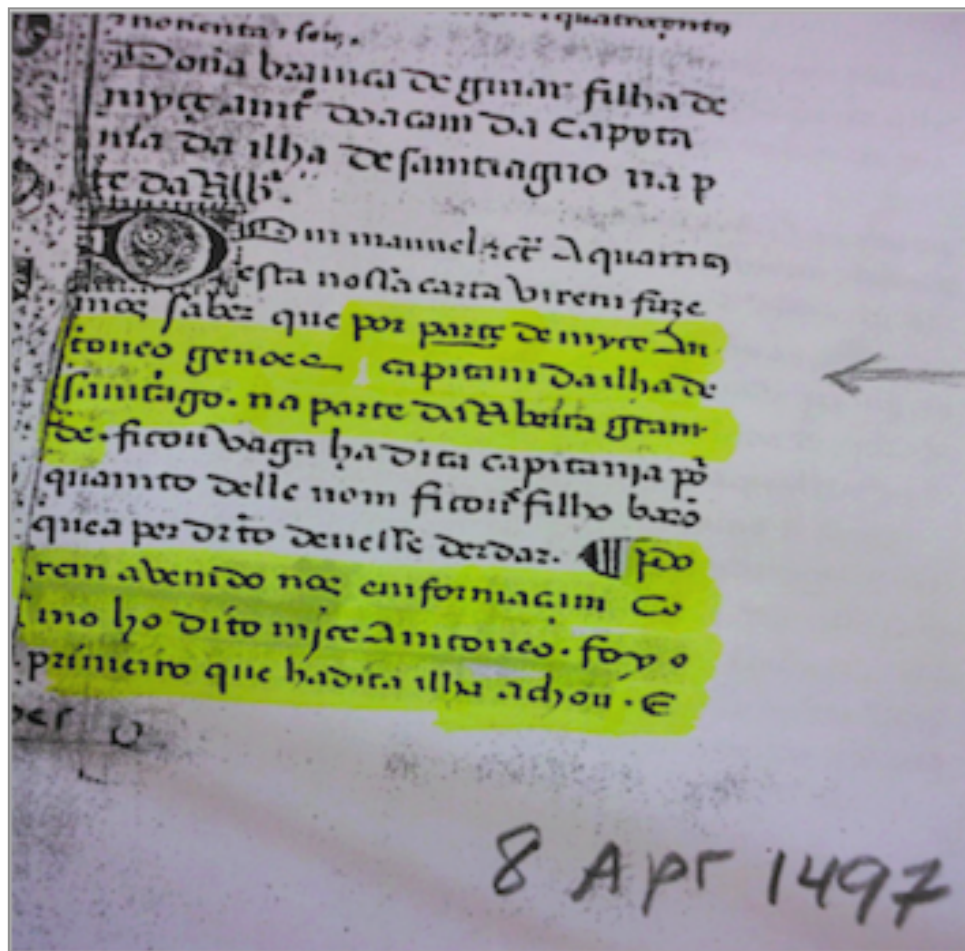 nonenta r seis.
Dona branca de guiar filha de
myçe amt̃ doacam da Capota
nia da ilha de santiaguo na p
te da Rib.ª
Dm manuel ⁊ cẽ A quamtos
esta nossa carta virem faze
mos saber que por parte de myce An
toneo genoes capitam da ilha de
santiago. na parte da Ribeira gram
de. ficou vaga ha dita capitania põ
quamto delle nom ficou filho barõ
que a per drt̃o devesse derdar. porẽo
rem avendo nos emformaçam Co
mo ho dito myce Amtoneo. foy o
primeiro que ha dita ilha achou. E
8 Apr 1497